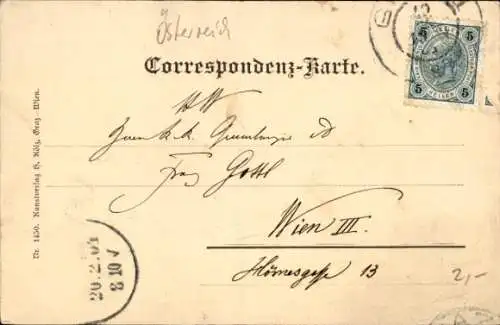 Österreich
Correspondenz-Karte.
5 5
HELLER
5 5
Herrn k. k.
Franz Gottl
Wien III.
Hörnesgasse 13
2,-
Nr. 1450. Kunstverlag Graz-Wien.
20.2.01